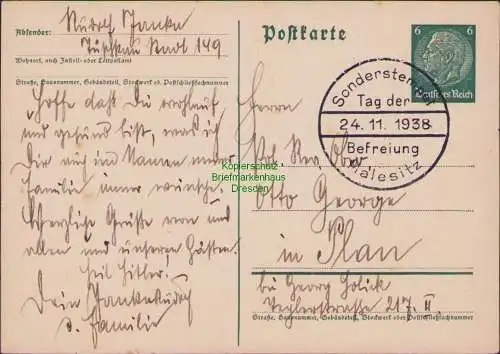 Absender: Rudolf Janka
Tuschkau Stadt 149
Wohnort, auch Zustell- oder Leitpostamt
Straße, Hausnummer, Gebäudeteil, Stockwerk od. Postschließfachnummer
Hoffe daß Du
und gesund bist, was ich
Dir auch im Namen meiner
Familie immer wünsche.
Herzliche Grüße von uns
allen und unseren Gästen.
Heil Hitler.
Dein Janka Rudolf
u. Familie
Postkarte
6 6
Deutsches Reich
Sonderstempel
Tag der
24. 11. 1938
Befreiung
Malesitz
Herrn
Otto George
in Plan
bei Georg Golick
217. II.
Straße, Hausnummer, Gebäudeteil, Stockwerk oder Postschließfachnummer
Kopierschutz
Briefmarkenhaus
Dresden